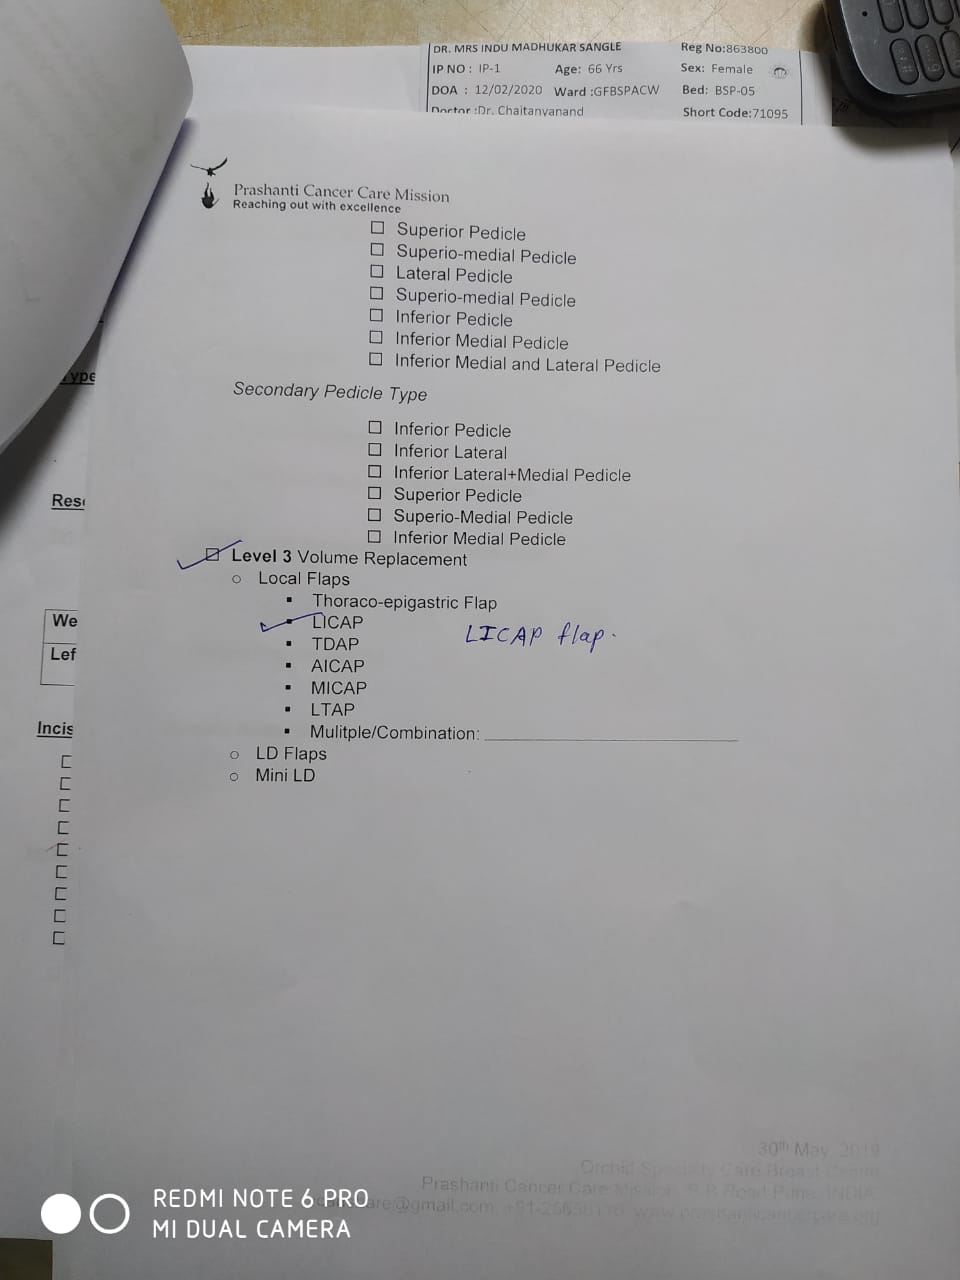 DR. MRS INDU MADHUKAR SANGLE Reg No:863800
IP NO : IP-1 Age: 66 Yrs Sex: Female
DOA : 12/02/2020 Ward :GFBSPACW Bed: BSP-05
Doctor :Dr. Chaitanyanand Short Code:71095
Prashanti Cancer Care Mission
Reaching out with excellence
☐ Superior Pedicle
☐ Superio-medial Pedicle
☐ Lateral Pedicle
☐ Superio-medial Pedicle
☐ Inferior Pedicle
☐ Inferior Medial Pedicle
☐ Inferior Medial and Lateral Pedicle
Secondary Pedicle Type
☐ Inferior Pedicle
☐ Inferior Lateral
☐ Inferior Lateral+Medial Pedicle
☐ Superior Pedicle
☐ Superio-Medial Pedicle
☐ Inferior Medial Pedicle
Level 3 Volume Replacement
o Local Flaps
▪ Thoraco-epigastric Flap
▪ LICAP
LICAP flap.
▪ TDAP
▪ AICAP
▪ MICAP
▪ LTAP
▪ Mulitple/Combination:
o LD Flaps
o Mini LD
We
Lef
Incis
30th May, 2019
Orchid Specialty Care Breast Centre
Prashanti Cancer Care Mission
REDMI NOTE 6 PRO
MI DUAL CAMERA